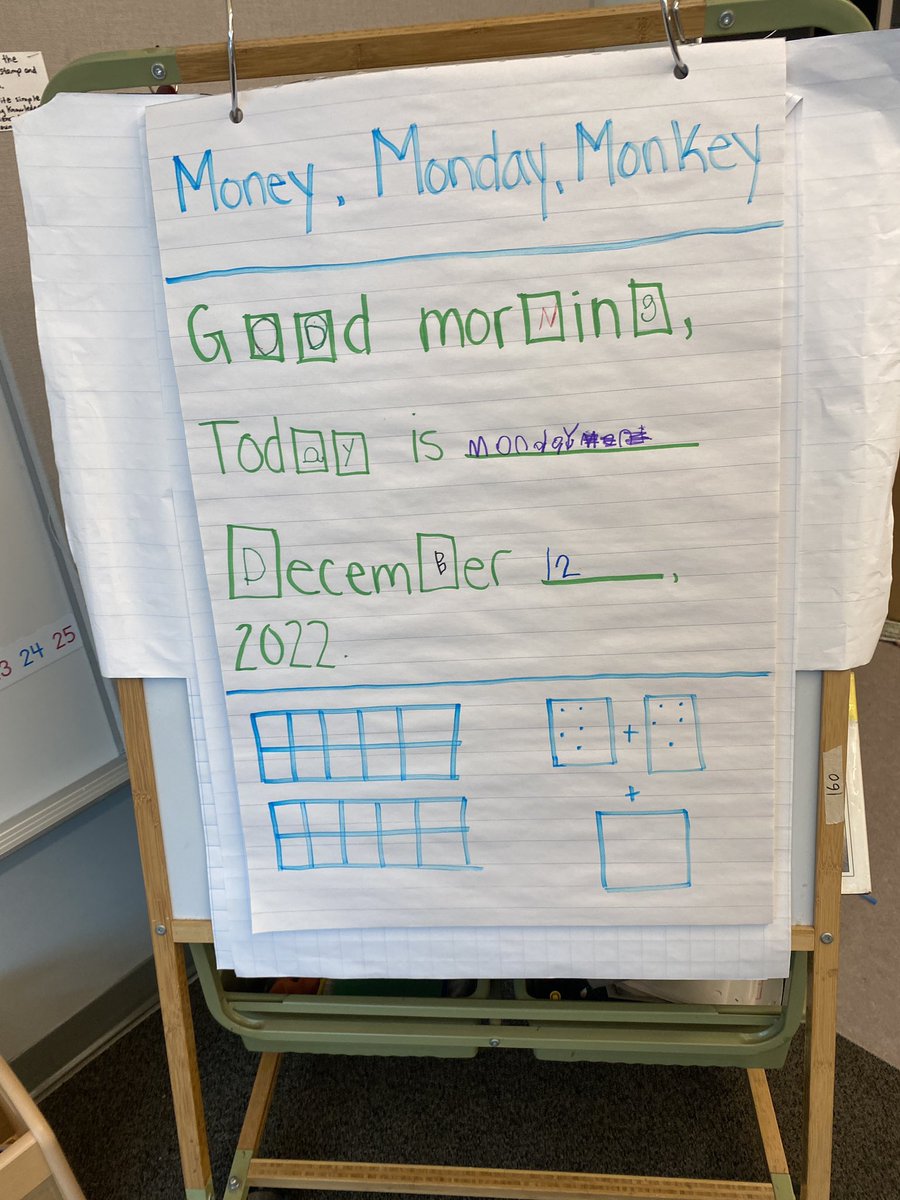 the
stamp and
Money, Monday, Monkey
GOOd morNing,
Today is monday
DecemBer 12,
2022.
3 24 25
+
+
160